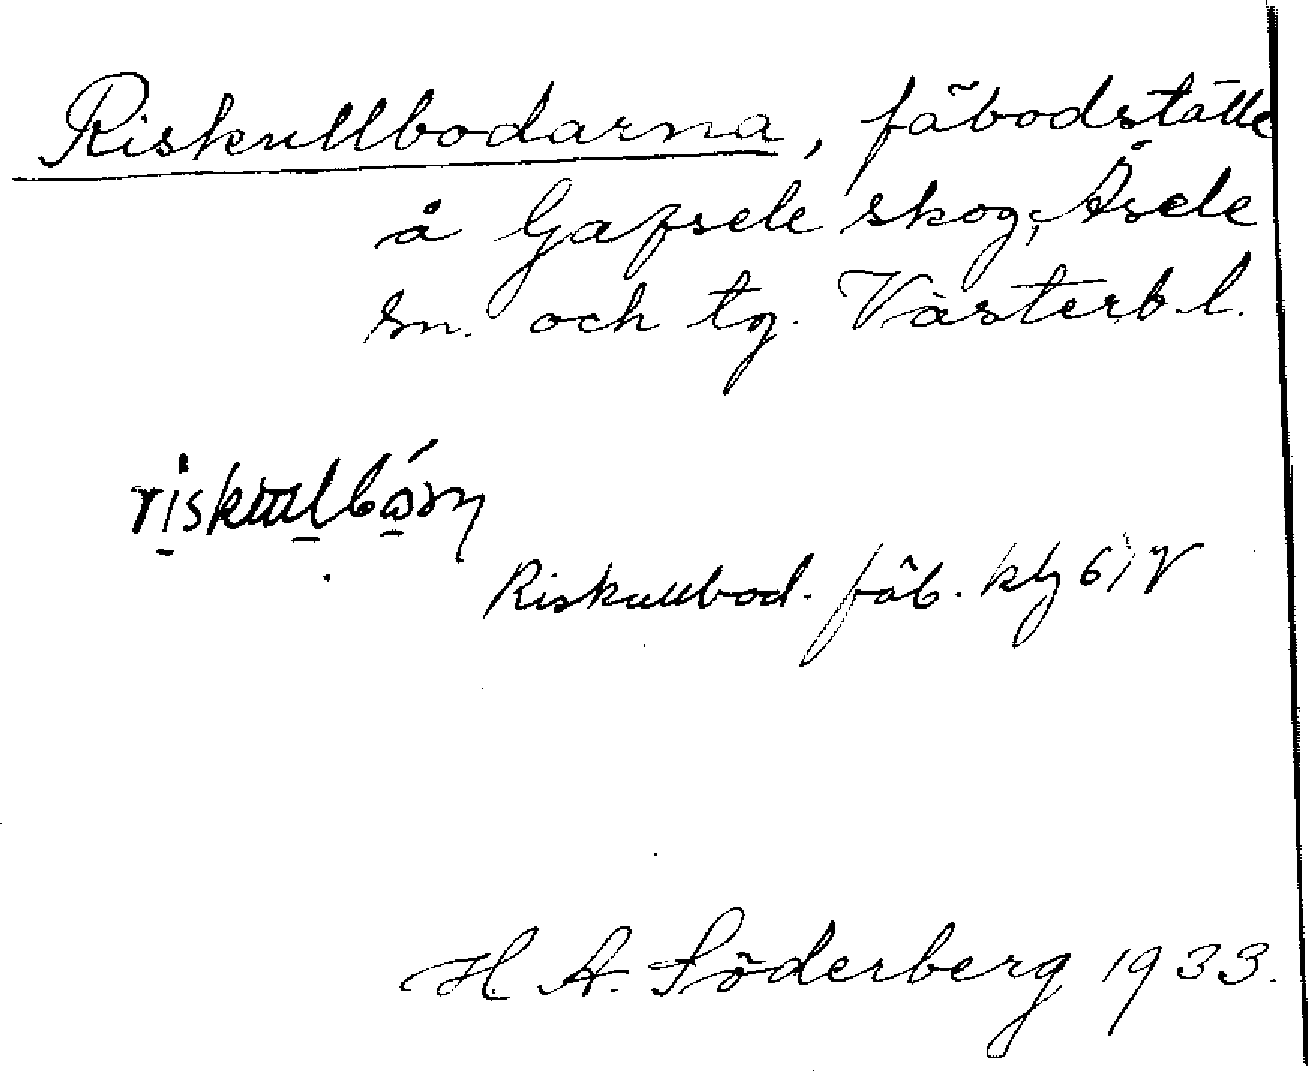 Riskullbodarna, fäbodställe
å Gafsele skog, Åsele
sn. och tg. Västerb. l.
Riskullbod. fäb. 
H. A. Söderberg 1933.